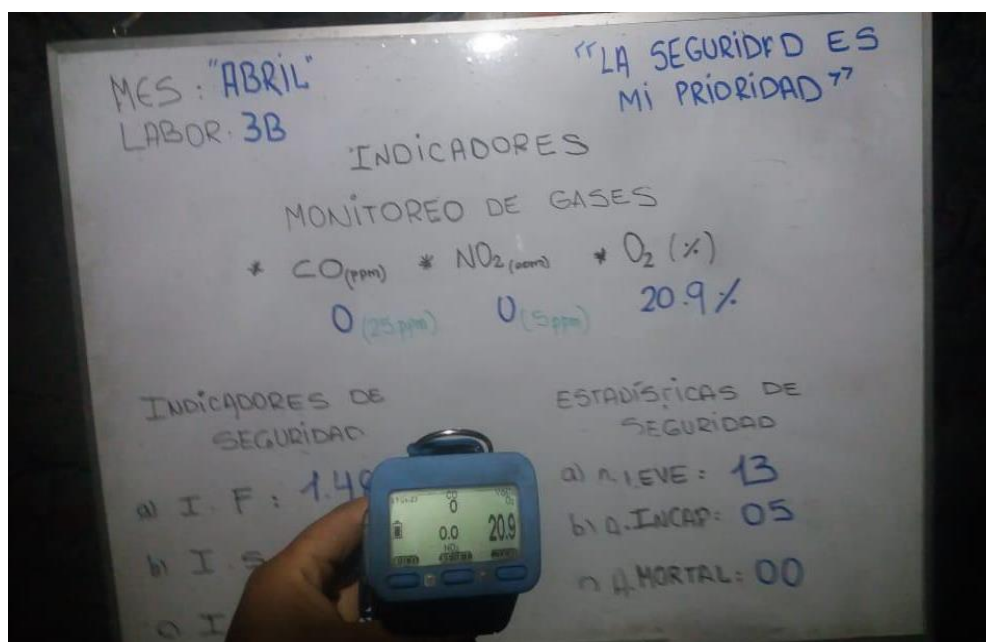 MES: "ABRIL"
LABOR: 3B
"LA SEGURIDAD ES
MI PRIORIDAD"
INDICADORES
MONITOREO DE GASES
* CO(ppm) * NO2 * O2 (%)
0 (25ppm) 0 (5ppm) 20.9%
INDICADORES DE
SEGURIDAD
a) I.F: 1.49
b) I.S
c) I
ESTADÍSTICAS DE
SEGURIDAD
a) A.LEVE: 13
b) A.INCAP: 05
A.MORTAL: 00
CO
0
0.0
NO2
O2
20.9